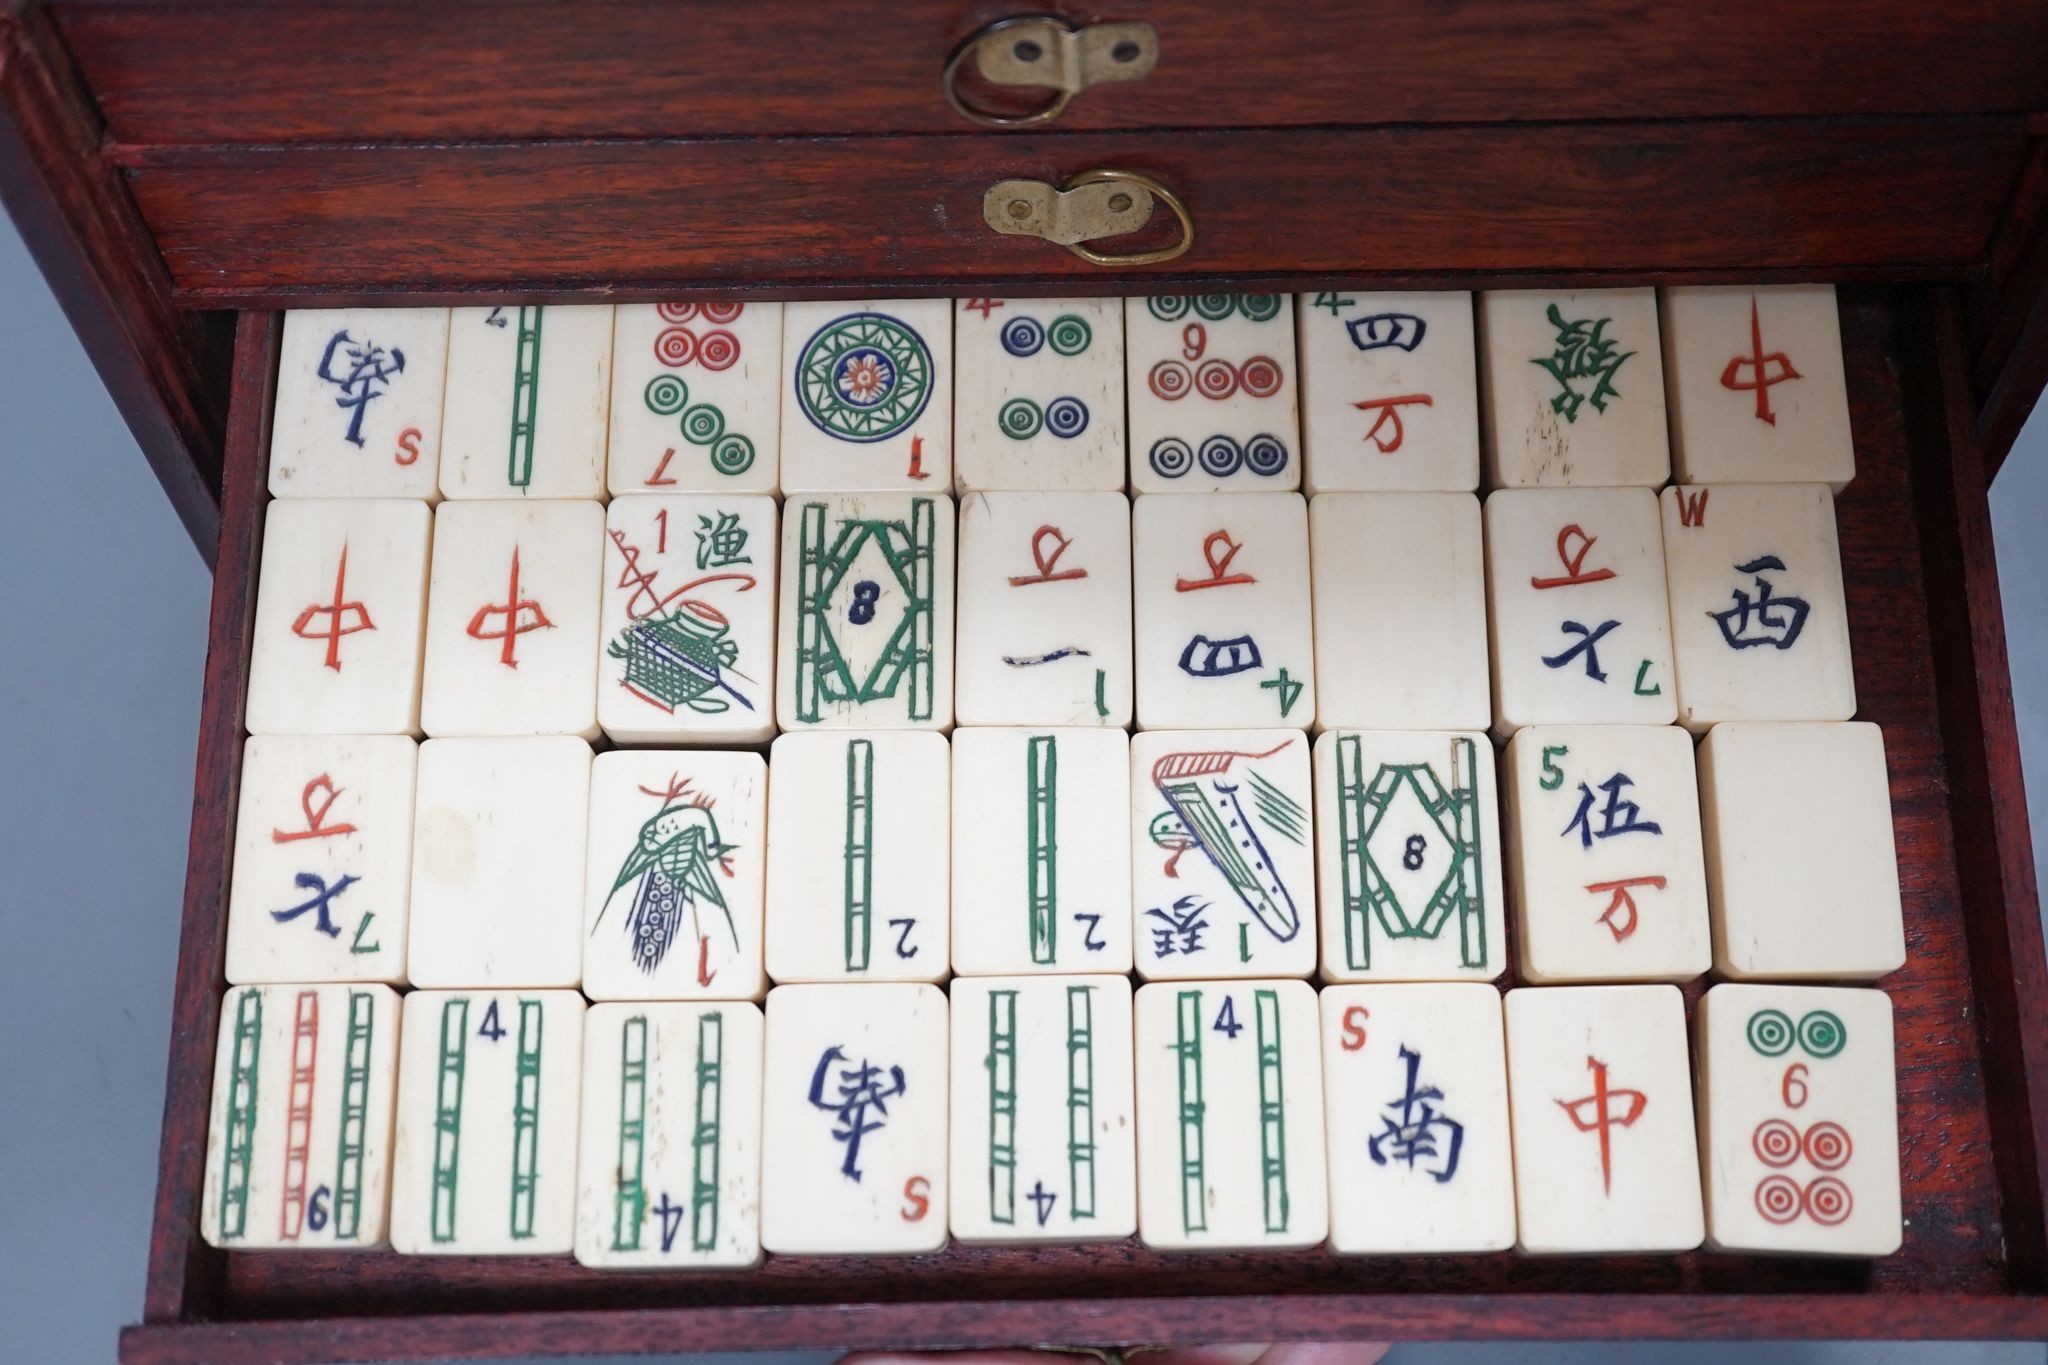 南 S
2
7
1
4
9
4 四 万
發
中
中
中
1 漁
8
万 一 1
万 四 4
万 七 7
W 西
万 七 7
1
2
2
琴 1
8
5 伍 万
6
4
4
南 S
4
4
S 南
中
6